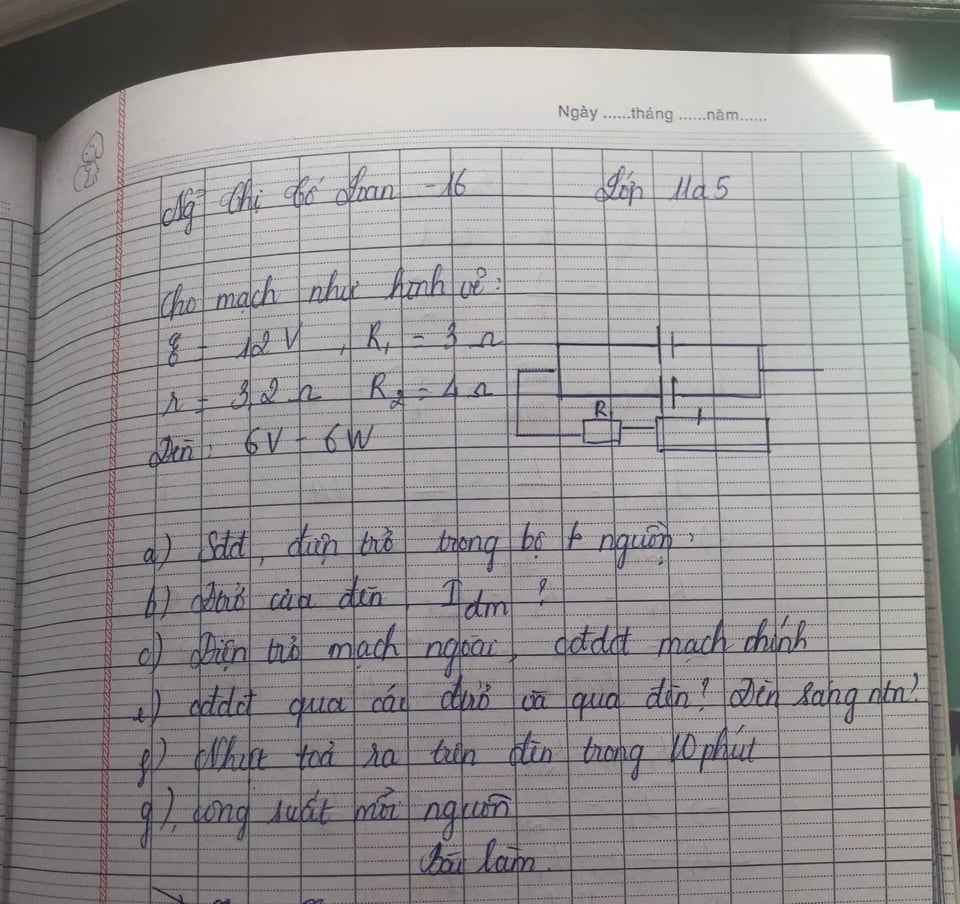 Ngày ......tháng ......năm......
Ng Thị Loan - 16 Lớp 11a5
Cho mạch như hình vẽ:
ξ = 12 V , R₁ = 3 Ω
r = 3,2 Ω R₂ = 4 Ω
R
Đèn : 6V - 6W
a) Sđđ, điện trở trong bộ nguồn.
b) Đtrở của đèn, Iđm ?
c) Điện trở mạch ngoài, cđdđ mạch chính
e) cđdđ qua các đtrở và qua đèn? Đèn sáng ntn?
f) Nhiệt toả ra trên đèn trong 10 phút
g), công suất mỗi nguồn
Bài làm.